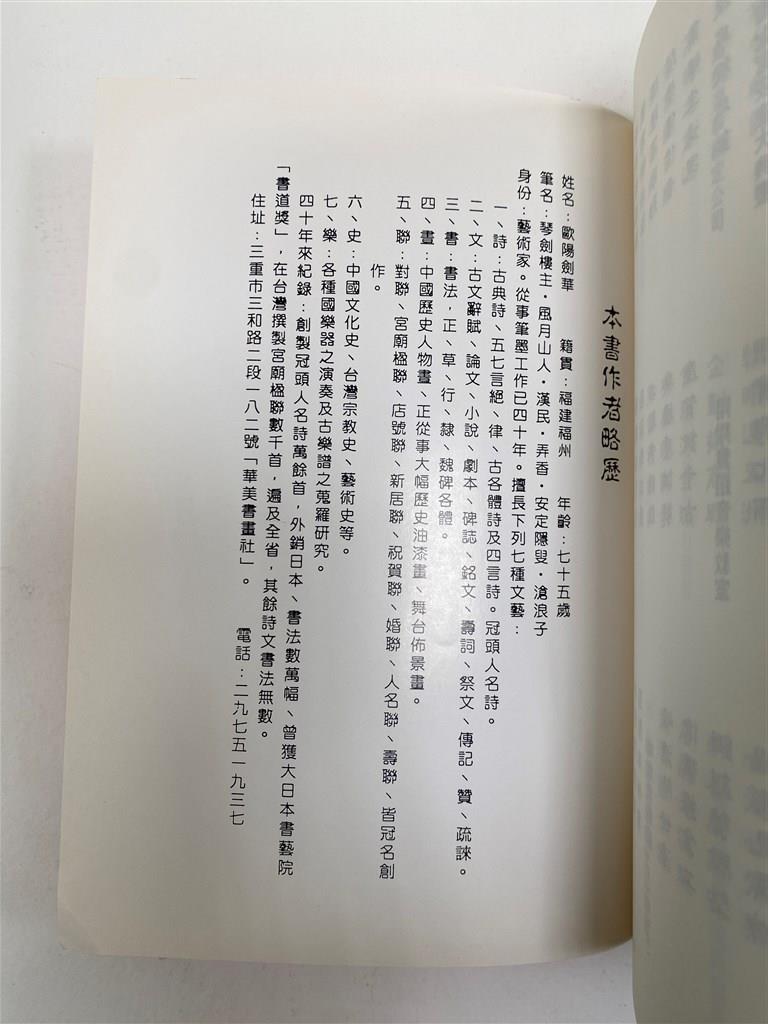 本書作者略歷
姓名：歐陽劍華　籍貫：福建福州　年齡：七十五歲
筆名：琴劍樓主・風月山人・漢民・弄香・安定隱叟・滄浪子
身份：藝術家。從事筆墨工作已四十年。擅長下列七種文藝：
一、詩：古典詩、五七言絕、律、古各體詩及四言詩。冠頭人名詩。
二、文：古文辭賦、論文、小說、劇本、碑誌、銘文、壽詞、祭文、傳記、贊、疏誄。
三、書：書法，正、草、行、隸、魏碑各體。
四、畫：中國歷史人物畫、正從事大幅歷史油漆畫、舞台佈景畫。
五、聯：對聯、宮廟楹聯、店號聯、新居聯、祝賀聯、婚聯、人名聯、壽聯、皆冠名創
作。
六、史：中國文化史、台灣宗教史、藝術史等。
七、樂：各種國樂器之演奏及古樂譜之蒐羅研究。
四十年來紀錄：創製冠頭人名詩萬餘首，外銷日本、書法數萬幅、曾獲大日本書藝院
「書道獎」，在台灣撰製宮廟楹聯數千首，遍及全省，其餘詩文書法無數。
住址：三重市三和路二段一八二號「華美書畫社」。　電話：二九七五一九三七